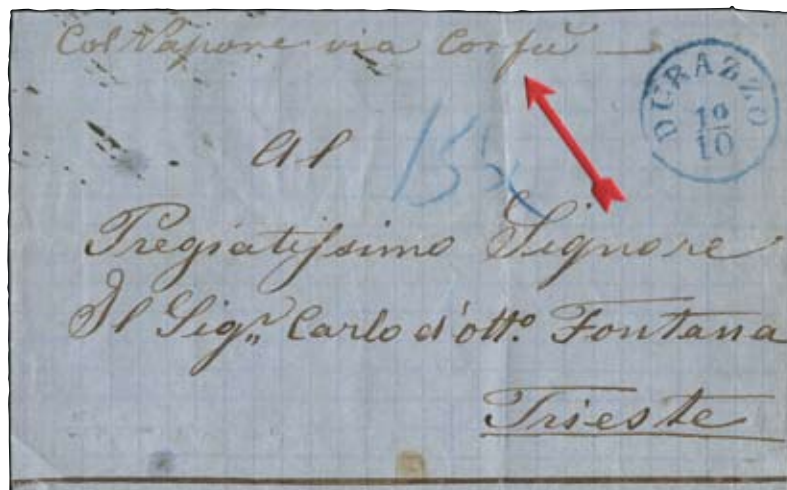 Col Vapore via Corfù
DURAZZO
10
10
Al
15
Pregiatissimo Signore
Il Sigṛ Carlo d'ottº Fontana
Trieste